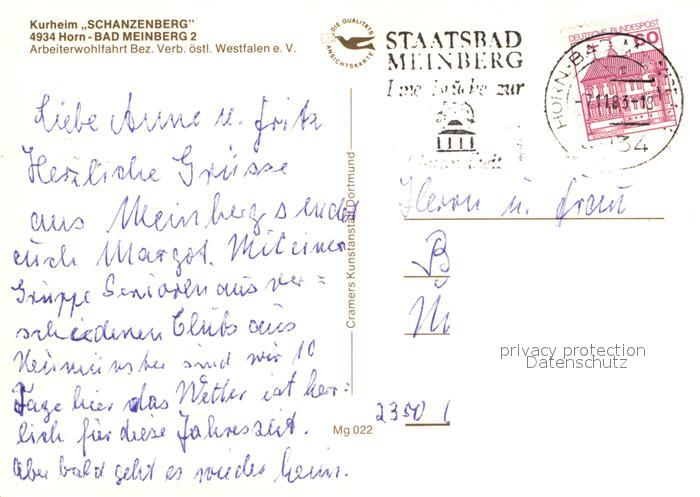 Kurheim „SCHANZENBERG"
4934 Horn - BAD MEINBERG 2
Arbeiterwohlfahrt Bez. Verb. östl. Westfalen e. V.
DIE QUALITÄTS
ANSICHTSKARTE
STAATSBAD
MEINBERG
Eine Brücke zur
DEUTSCHE BUNDESPOST
60
HORN-BA
-7.11.83-18
4934
Liebe Anne u. Fritz
Herzliche Grüsse
aus Meinberg sendet
euch Margot. Mit einer
Gruppe Senioren aus ver=
schiedenen Clubs aus
Neumünster sind wir 10
Tage hier das Wetter ist herr=
lich für diese Jahreszeit.
Aber bald geht es wieder heim.
Cramers Kunstanstalt Dortmund
Mg 022
Herrn u. Frau
B
2350
privacy protection
Datenschutz